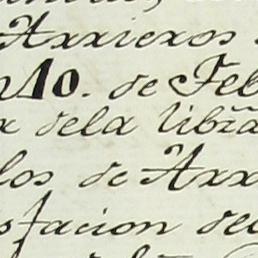 Arrieros
10. de Feb
r dela libra
los de Arr
sfacion del